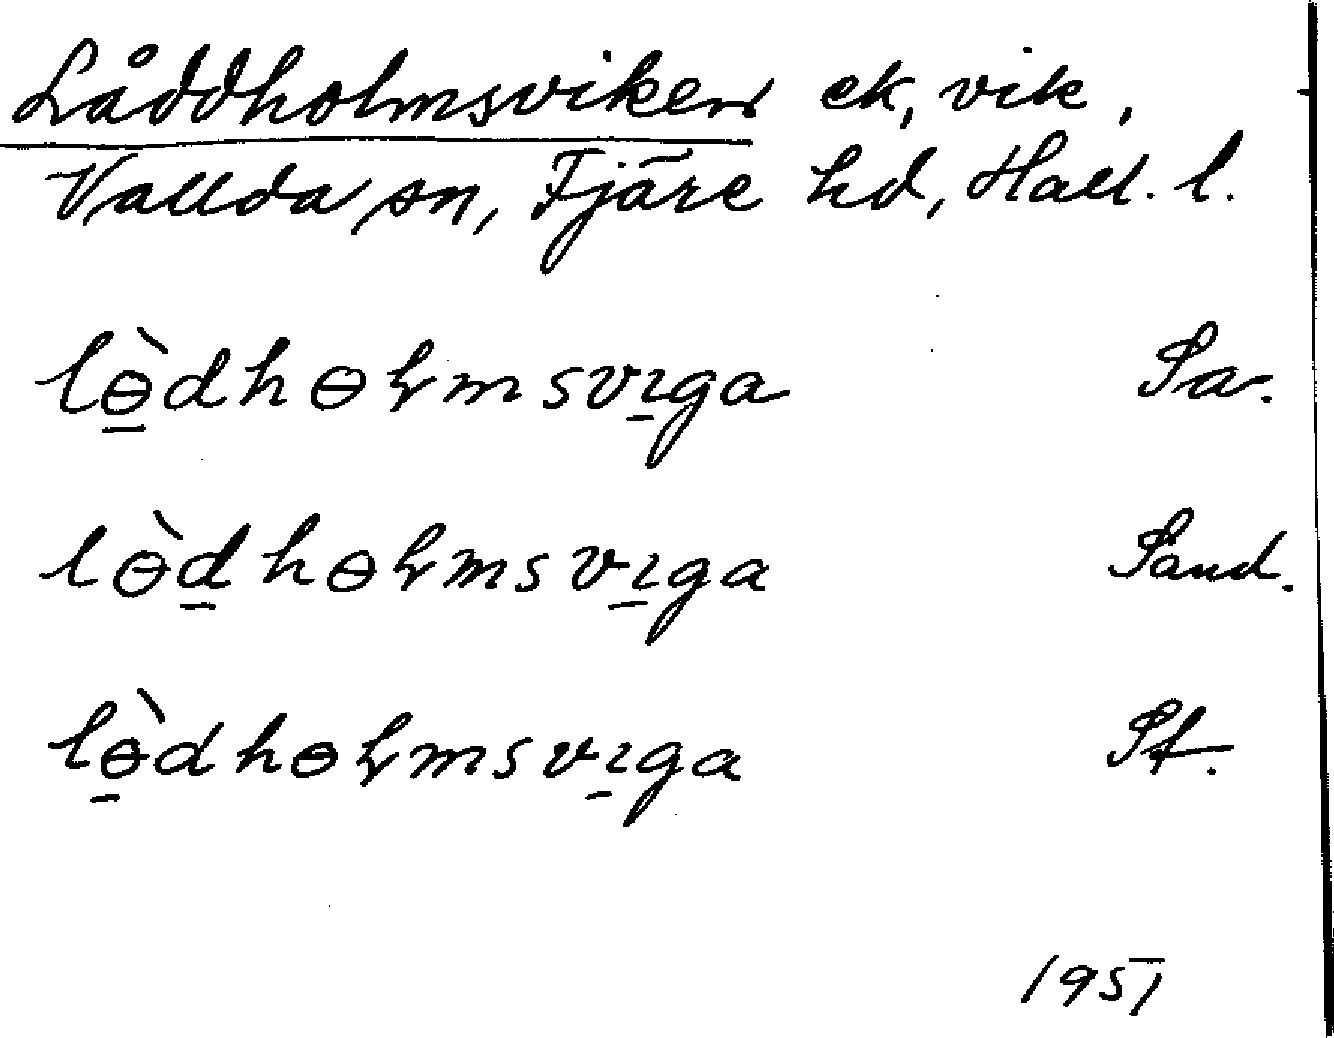 Låddholmsviken ek, vik,
Vallda sn, Fjäre hd, Hall. l.
lɵ̠̀dhɵɫmsvı̠ga Sa.
lɵ̀d̠hɵɫmsvı̠ga Sand.
lɵ̠̀dhɵɫmsvı̠ga St.
1951